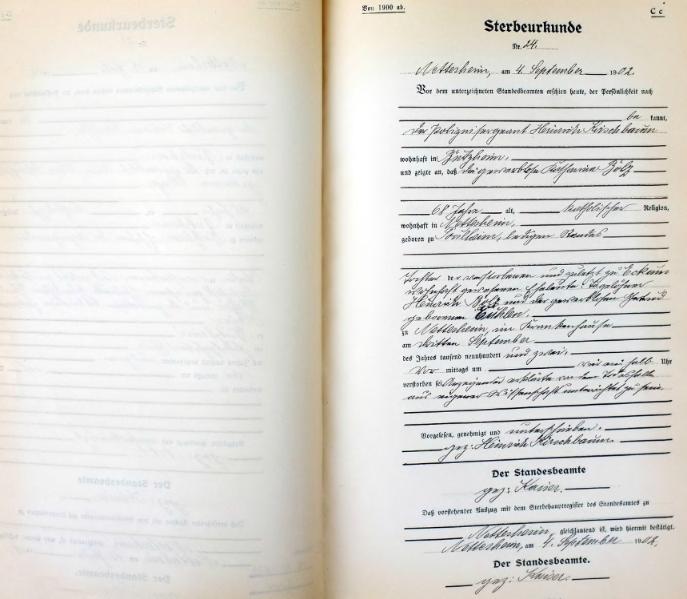 Von 1900 ab.
C c
Sterbeurkunde
Nr. 24.
Netterheim, am 4. September 1902.
Vor dem unterzeichneten Standesbeamten erschien heute, der Persönlichkeit nach
be kannt,
der Polizeisergeant Heinrich Kirschbaum
wohnhaft in Zülpich
und zeigte an, daß die gewerblose Katharina
68 Jahre alt, katholischer Religion,
wohnhaft in Netterheim,
geboren zu, ledigen Standes
Tochter der verstorbenen und zuletzt zu
wohnhaft gewesenen Eheleute Tagelöhner
Heinrich und der gewerblosen Gertrud
geborenen
zu Netterheim, im Krankenhause
am dritten September
des Jahres tausend neunhundert und zwei,
Vor mittags um ein halb Uhr
verstorben sei. erklärte von dem Sterbefalle
aus eigener Wissenschaft unterrichtet zu sein.
Vorgelesen, genehmigt und unterschrieben.
gez: Heinrich Kirschbaum
Der Standesbeamte
gez: Kaiser.
Daß vorstehender Auszug mit dem Sterbehauptregister des Standesamtes zu
Netterheim, gleichlautend ist, wird hiermit bestätigt.
Netterheim, am 4. September 1902.
Der Standesbeamte.
gez: Kaiser